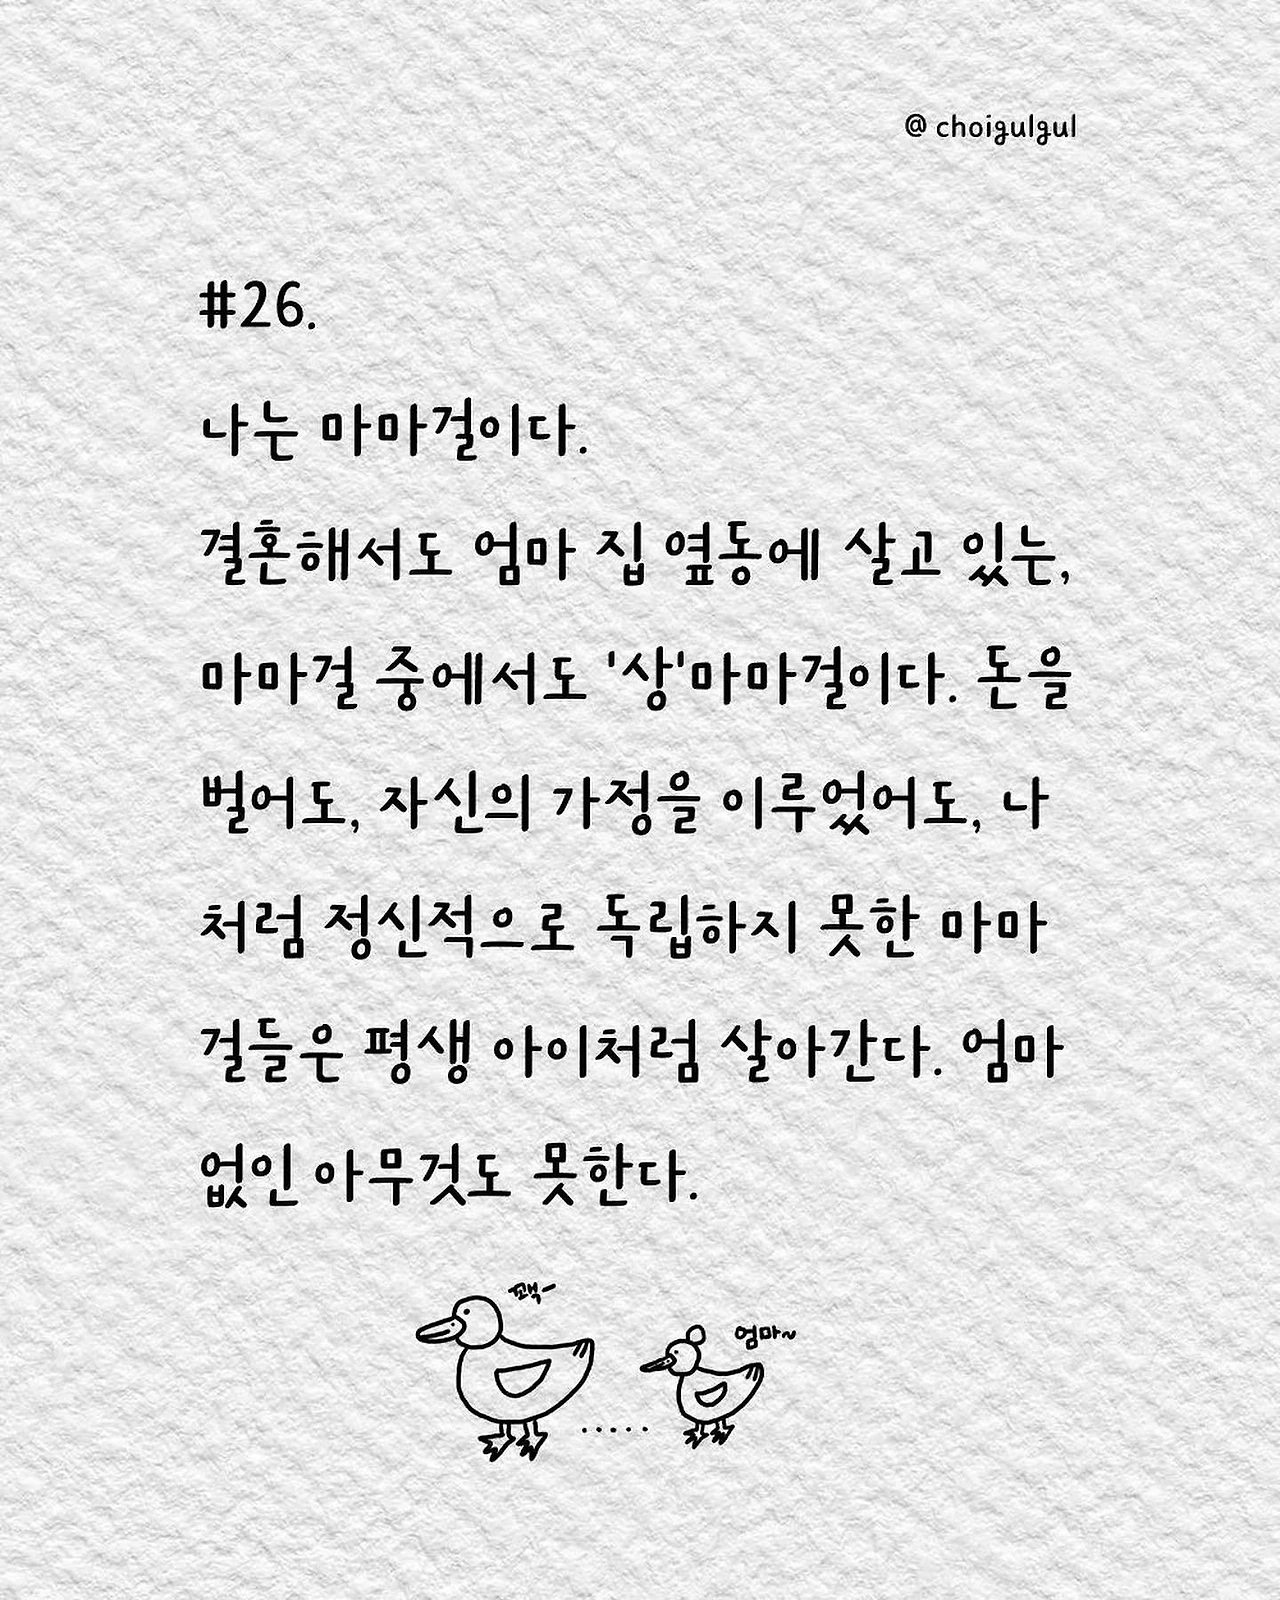 @ choigulgul
#26.
나는 마마걸이다.
결혼해서도 엄마 집 옆동에 살고 있는,
마마걸 중에서도 '상'마마걸이다. 돈을
벌어도, 자신의 가정을 이루었어도, 나
처럼 정신적으로 독립하지 못한 마마
걸들은 평생 아이처럼 살아간다. 엄마
없인 아무것도 못한다.
꽥-
엄마~